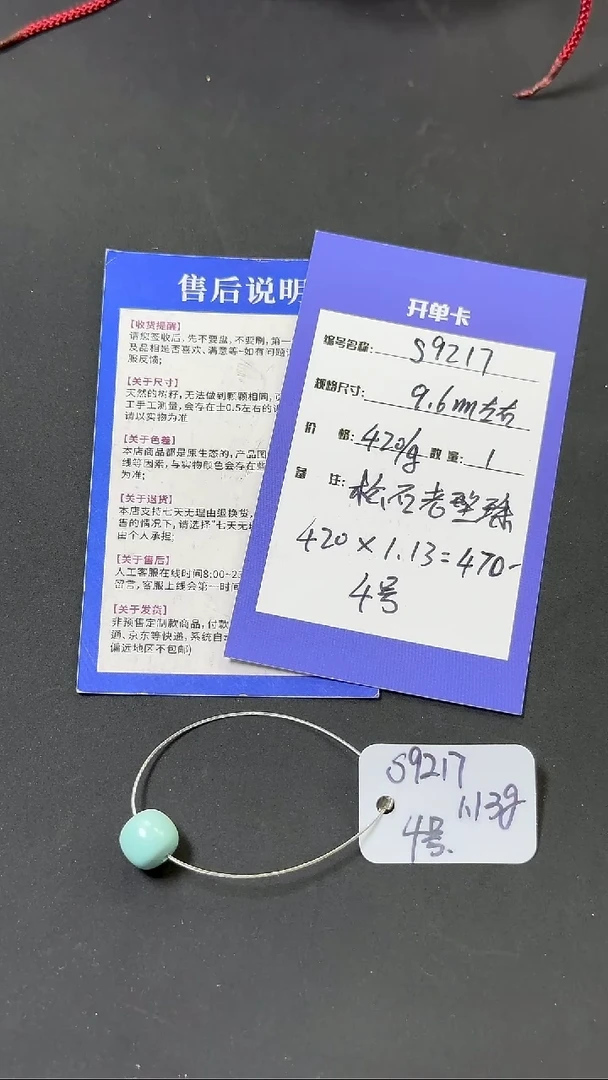 售后说明
【收货提醒】
请您签收后,先不要盘,不要刷,第一
及品相是否喜欢、满意等-如有问题
服反馈;
【关于尺寸】
天然的树籽,无法做到颗颗相同,
工手工测量,会存在士0.5左右的
请以实物为准
【关于色差】
本店商品都是原生态的,产品图
线等因素,与实物颜色会存在些
为准;
【关于退货】
本店支持七天无理由退换货,
售的情况下,请选择"七天无
由个人承担;
【关于售后】
人工客服在线时间8:00~23
留言,客服上线会第一时间
【关于发货】
非预售定制款商品,付款
通、京东等快递,系统自
偏远地区不包邮)
开单卡
编号名称: S9217
规格尺寸: 9.6mm左右
价 格: 420/g 数量: 1
备 注: 松石老型珠
420×1.13=470-
4号
S9217
1.13g
4号.